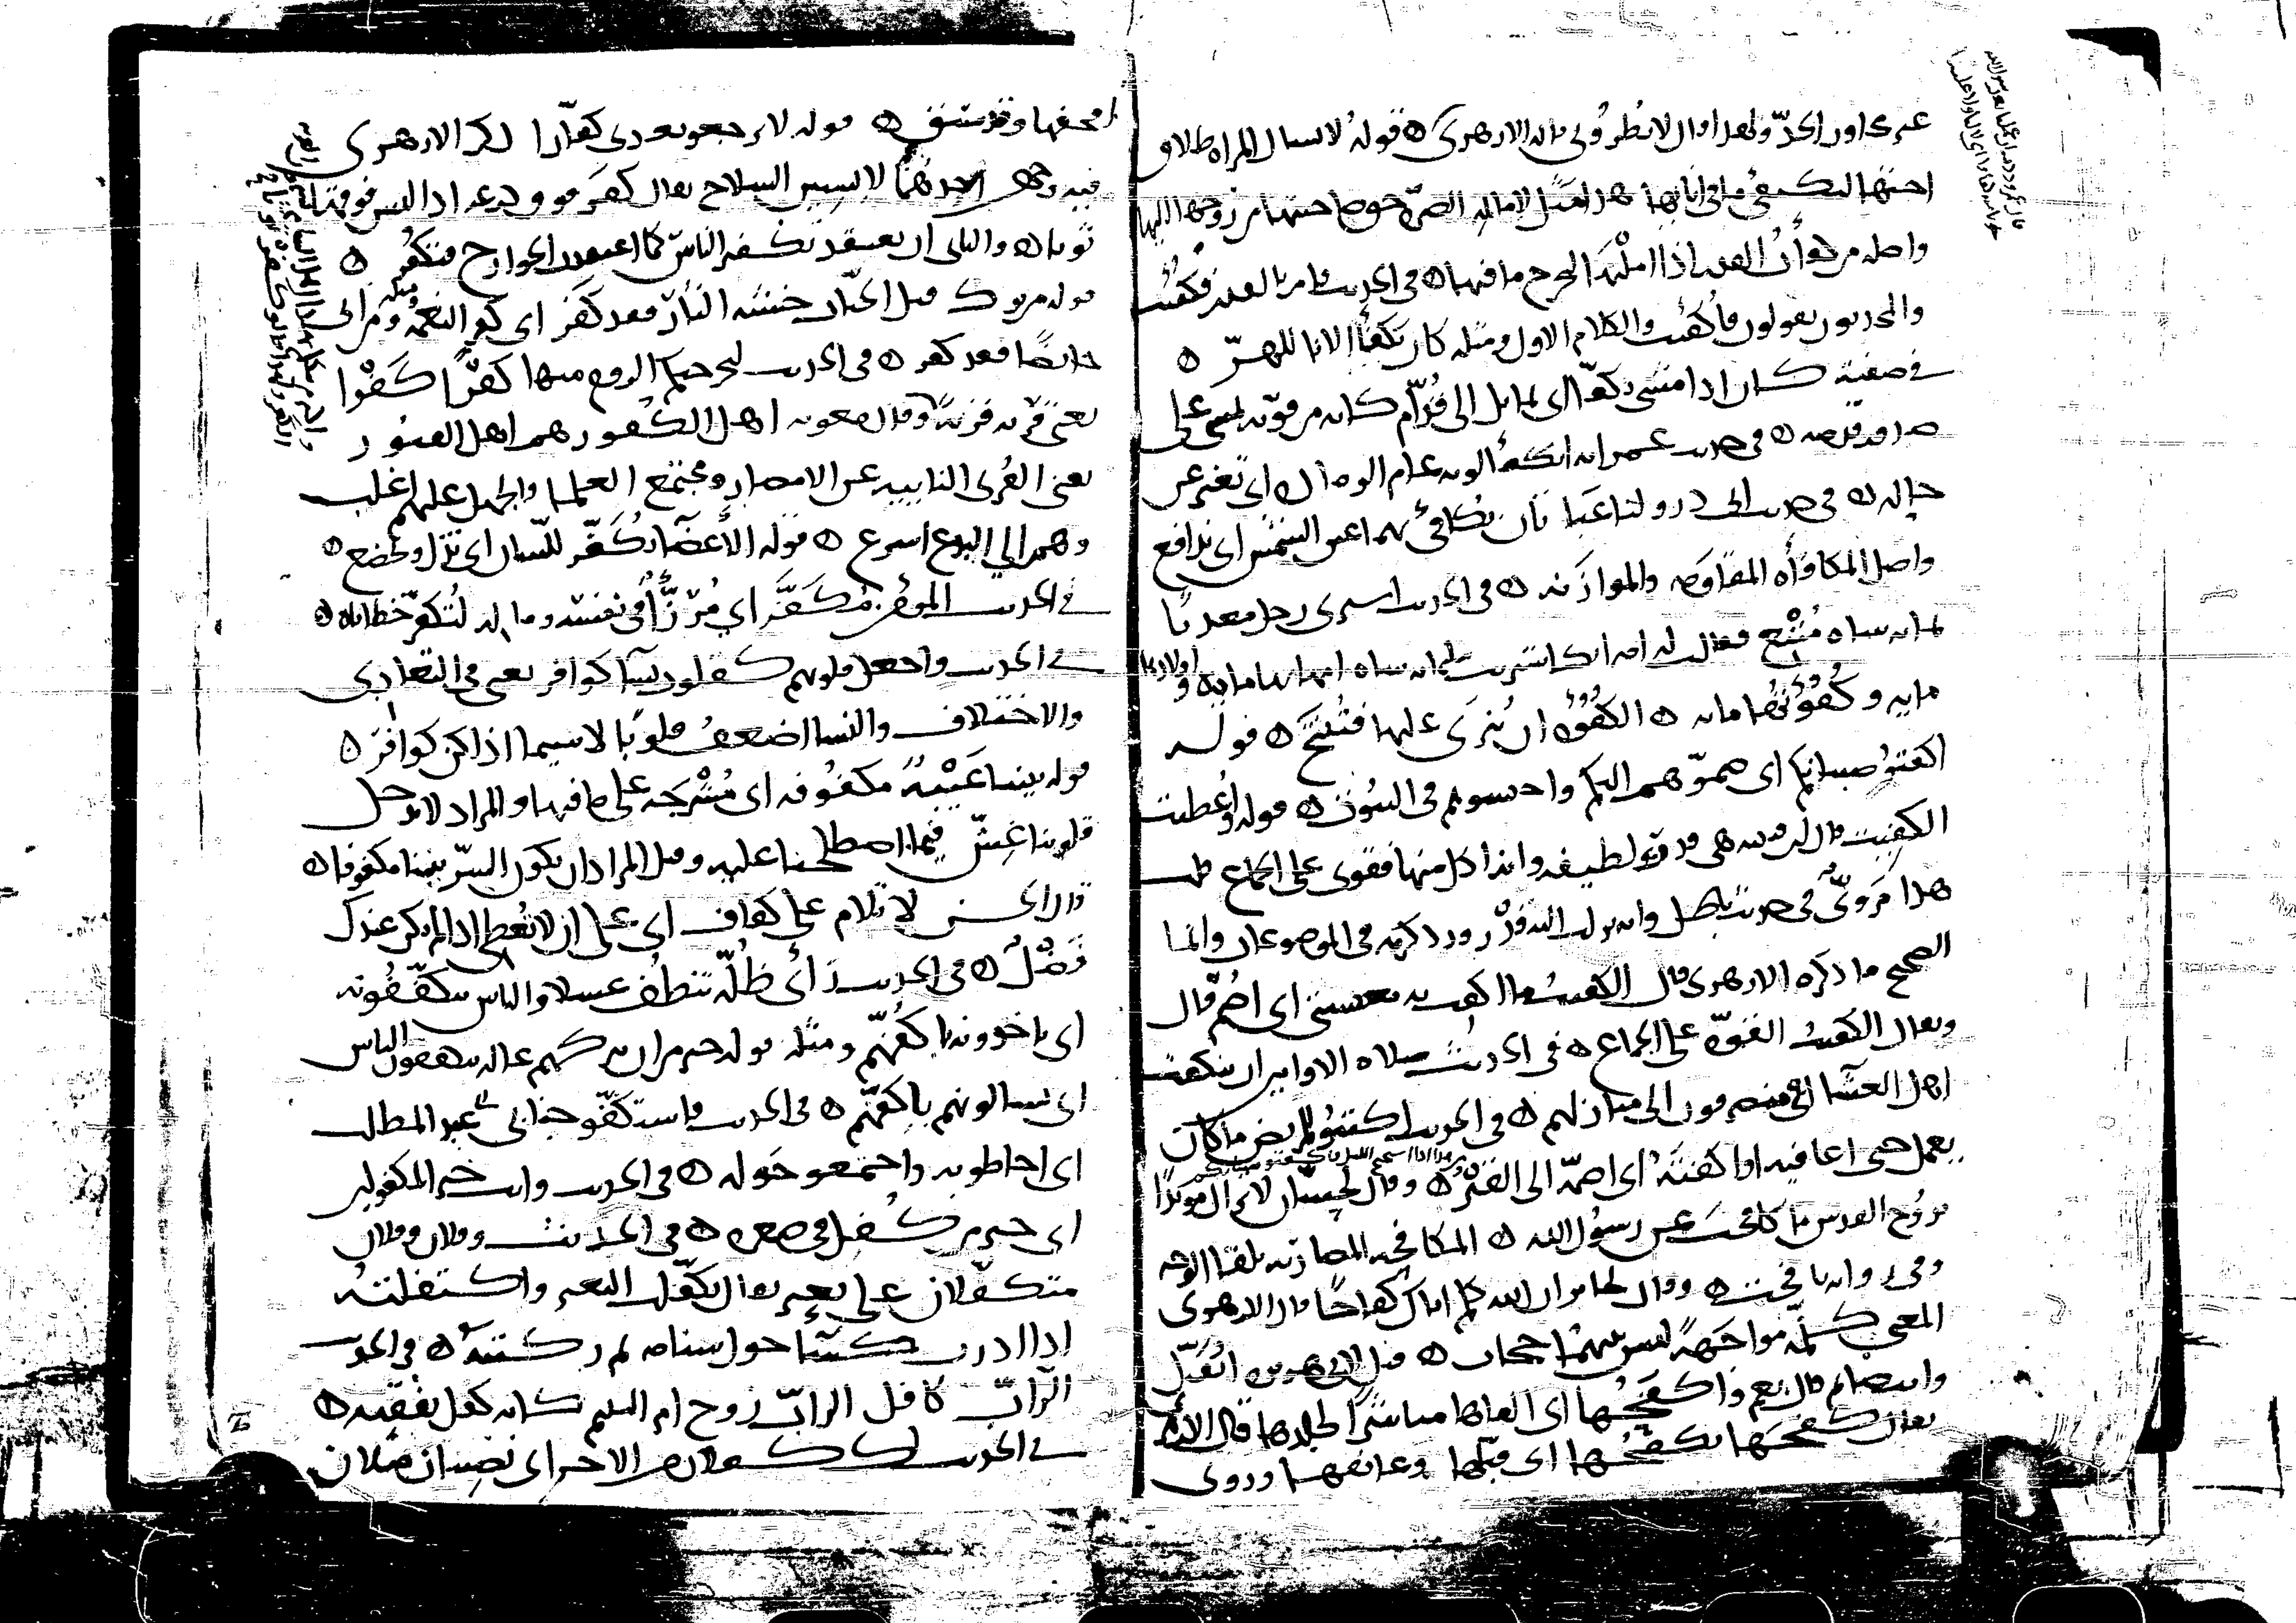 واصله من كفأت القدر اذا املتها ليخرج ما فيها ه في الحديث فامر بالقدور فكفئت
والمحدثون يقولون فأكفئت والكلام الاول ومثله كان يكفأ الانا للهرّ ه
في صفته كان اذا مشى تكفّأ اي تمايل الى قُدّام كانه من قوته يمشي على
صدور قدميه ه في حديث عمر انه انكفأ لونه عام الرماده اي تغير عن
حاله ه في حديث ابي ذر ولنا عباتان نكافئ بهما عين الشمس اي ندافع
واصل المكافأه المقاومه والموازنه ه في الحديث اشترى رجل معدنًا
بمايه شاه مُتْبِع فقالت له امه انك اشتريت بثلثمايه شاه امهاتها مايه واولادها
مايه وكُفْؤُتُها مايه ه الكُفْؤه ان يُنزى عليها فتُنتَج ه قوله
اكفتوا صبيانكم اي ضمّوهم اليكم واحبسوهم في البيوت ه قوله واُعطيت
الكفيت قال ابن قتيبه هي قدر لطيفه وانه اكل منها فقوى على الجماع قلت
هذا مَرويٌّ في حديث باطل وانه نزلت اليه قِدْر وقد ذكرته في الموضوعات وانما
الصحيح ما ذكره الازهري قال الكفيت ما اكفت به معيشتي اي اضُم قال
ويقال الكفيت القوّه على الجماع ه في الحديث صلاه الاوابين ان ينكفت
اهل العشا اي ينصرفون الى منازلهم ه في الحديث اكتبوا للمريض ما كان
يعمل حتى اعافيه او اكفته اي اضمّه الى القبر ه وقال لحسّان لا تزال مؤيدًا
بروُح القدس ما كافحتَ عن رسول الله ه المكافحه المضاربه تلقا الوجه
وفي روايه نافحت ه وقال لجابر ان الله كلم اباك كفاحًا قال الازهري
المعنى كلّمه مواجَهةً ليس بينهما حجاب ه قيل لابي هريره اتُقبّل
وانت صايم قال نعم واكفحُها اي القاها مباشرًا لجلدها قال
يقال كفحها يكفحُها اي قبّلها وعانقها وروى
اقحفها وقد سبق ه قوله لا ترجعوا بعدي كفّارا ذكر الازهري
فيه وجهين احدهما لابسين السلاح يقال كفر فوق درعه اذا لبس فوقها
ثوبا ه والثاني ان يعتقد تكفير الناس كما اعتقدت الخوارج فيكفر ه
قوله من ترك قتل الحيّات خشيه النار فقد كفر اي كفر النعمه ومثله ومن اتى
حايضًا فقد كفر ه في الحديث لتخرجنكم الروم منها كَفْرًا كَفْرًا
يعني قريه قريه وقال معويه اهل الكُفور هم اهل القبور
يعني القُرى النابيه عن الامصار ومجتمع العلما والجهل عليهم اغلب
وهم الى البدع اسرع ه قوله الأعضآ تُكَفّر للّسان اي تذل وتخضع ه
في الحديث المؤمن مُكَفَّر اي مُرَزّأ في نفسه وماله لتُكفّر خطاياه ه
في الحديث واجعل قلوبهم كقلوب نسآ كوافر يعني في التعادي
والاختلاف والنسا اضعف قلوبًا لاسيما اذا كن كوافر ه
قوله بيننا عَيْبةٌ مكفوفه اي مُشْرَجه على ما فيها والمراد لا
قلوبنا غِشّ فيما اصطلحنا عليه وقيل المراد ان يكون الشرّ بيننا مكفوفا ه
قال الحسن لا تلام على كفاف اي على ان لا تُعطي اذا لم يكن عندك
فَضْلٌ ه في الحديث رأى ظُلّه تنطُف عسلا والناس يتكفّفونه
اي ياخذونه باكُفّهم ومثله قوله خير من ان تتركهم عاله يتكففون الناس
اي يسالونهم باكفّهم ه في الحديث فاستكفّو جنابي عبد المطلب
اي احاطو به واجتمعو حَوله ه في الحديث وانت خير المكفولين
اي خير من كُفِل في صغره ه في الحديث وفلان وفلان
متكفّلان على بعير يقال تكفّلت البعير واكتفلته
اذا ادرت كسآ حول سنامه ثم ركبته ه في الحديث
الرّابّ كافل الرابّ زوج ام اليتيم كانه كفل نفقته ه
في الحديث لك كفلان من الاجر اي نصيبان مثلان